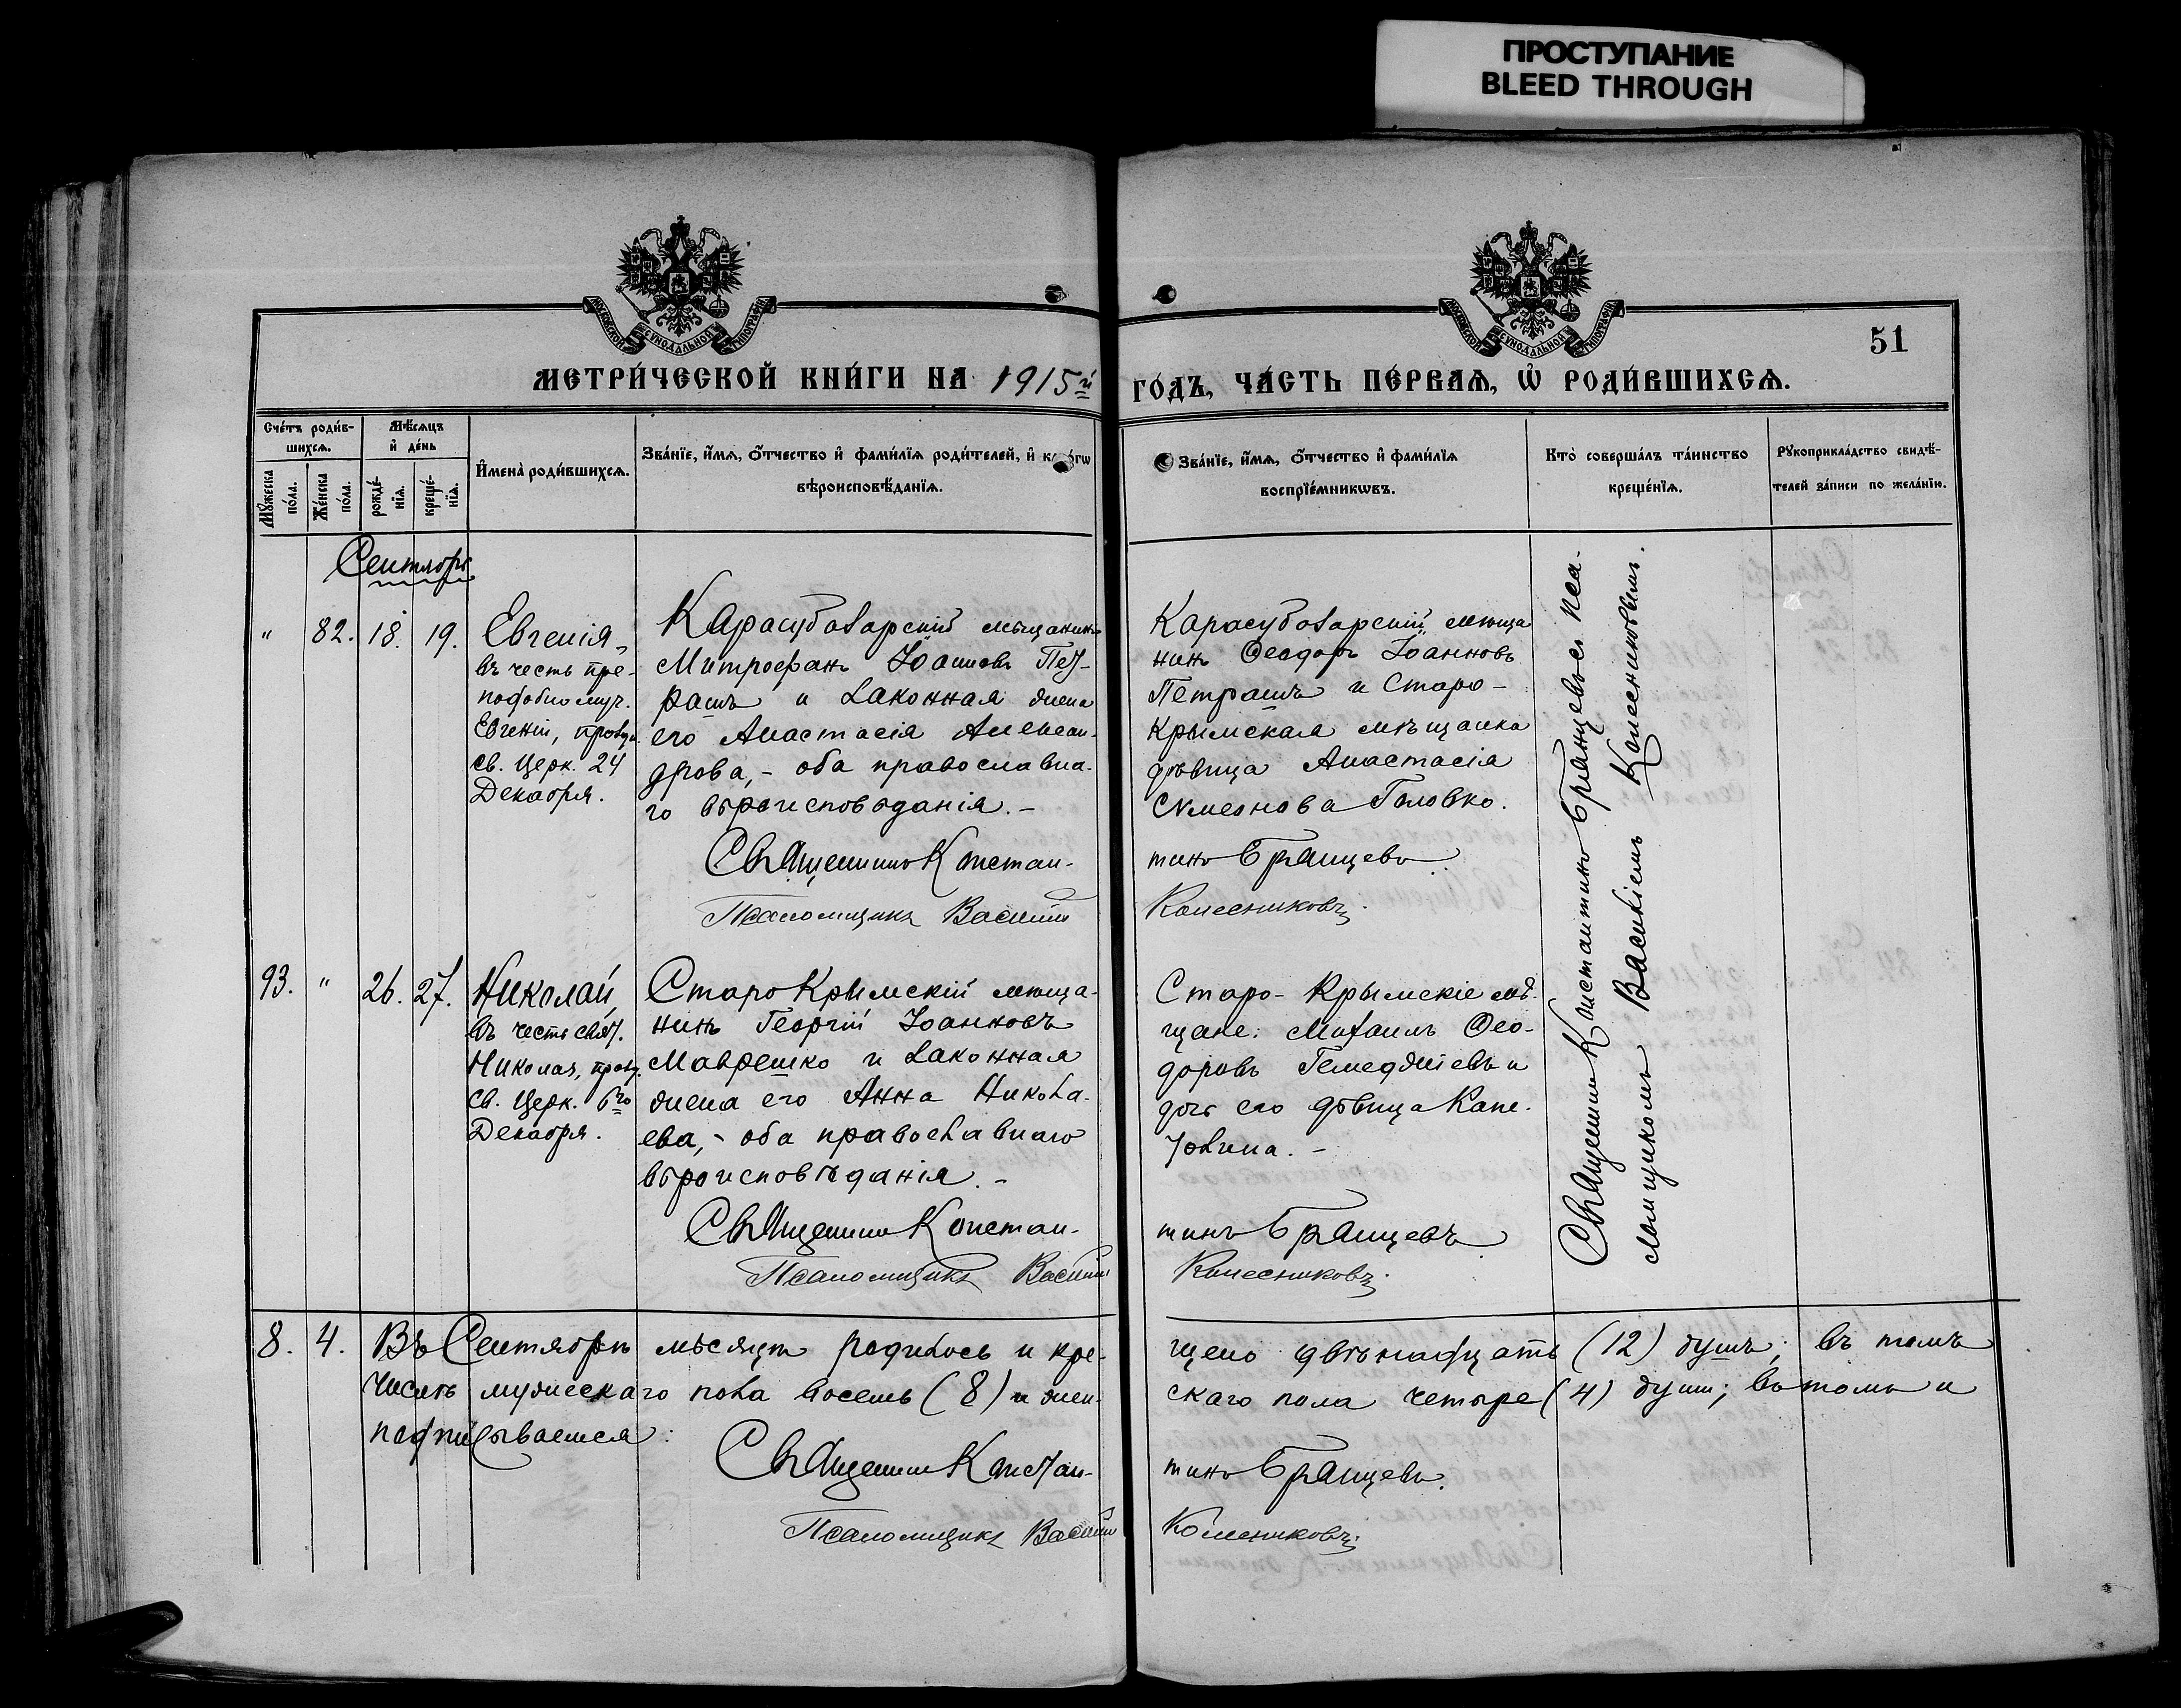 ПРОСТУПАНИЕ
BLEED THROUGH
МОСКОВСКОЙ СѴНОДАЛЬНОЙ ТИПОГРАФІИ
МОСКОВСКОЙ СѴНОДАЛЬНОЙ ТИПОГРАФІИ
51
МЕТРИ́ЧЕСКОЙ КНИ́ГИ НА 1915й
ГО́ДЪ, ЧА́СТЬ ПЕ́РВАЯ, Ѡ҆ РОДИ́ВШИХСЯ.
Сче́тъ роди́в-
шихсѧ.
Мꙋ́жеска по́ла.
Же́нска по́ла.
Мѣ́сѧцъ
и҆ де́нь
рожде́-нїѧ.
креще́-нїѧ.
И҆мена̀ роди́вшихсѧ.
Зва́нїе, и҆́мѧ, ѻ҆́тчество и҆ фами́лїѧ роди́телей, и҆ како́гѡ
вѣроисповѣ́данїѧ.
Зва́нїе, и҆́мѧ, ѻ҆́тчество и҆ фами́лїѧ
воспрїе́мникѡвъ.
Кто̀ соверша́лъ та́инство
креще́нїѧ.
Рꙋкоприкла́дство свидѣ́-
телей за́писи по жела́нїю.
Сентябрь
" 82. 18. 19.
Евгенія,
въ честь пре-
подобномуч.
Евгеніи, празд.
св. Церк. 24
Декабря.
Карасубазарскій мѣщанинъ
Митрофанъ Іоанновъ Пет-
рашъ и законная жена
его Анастасія Алексан-
дрова, - оба православна-
го вѣроисповѣданія. -
Священникъ Констан-
Псаломщикъ Василій
Карасубазарскій мѣща
нинъ Ѳеодоръ Іоанновъ
Петрашъ и Старо-
Крымская мѣщанка
дѣвица Анастасія
Сѵмеонова Головко.
тинъ Бранцевъ.
Колесниковъ.
Священникъ Константинъ Бранцевъ съ пса-
ломщикомъ Василіемъ Колесниковымъ.
93. " 26. 27.
Николай,
въ честь свят.
Николая, празд.
св. Церк. 6го
Декабря.
Старо Крымскій мѣща-
нинъ Георгій Іоанновъ
Маврешко и законная
жена его Анна Никола-
ева, - оба православнаго
вѣроисповѣданія. -
Священникъ Констан-
Псаломщикъ Василій
Старо-Крымскіе мѣ-
щане: Михаилъ Ѳео-
доровъ Гемеджіевъ и
дочь его дѣвица Капи-
толина. -
тинъ Бранцевъ
Колесниковъ.
8. 4. Въ Сентябрѣ мѣсяцѣ родилось и кре-
щено двѣнадцать (12) душъ; въ томъ
числѣ мужескаго пола восемь (8) и жен-
скаго пола четыре (4) души; въ томъ и
подписываемся:
Священникъ Констан-
тинъ Бранцевъ.
Псаломщикъ Василій
Колесниковъ.